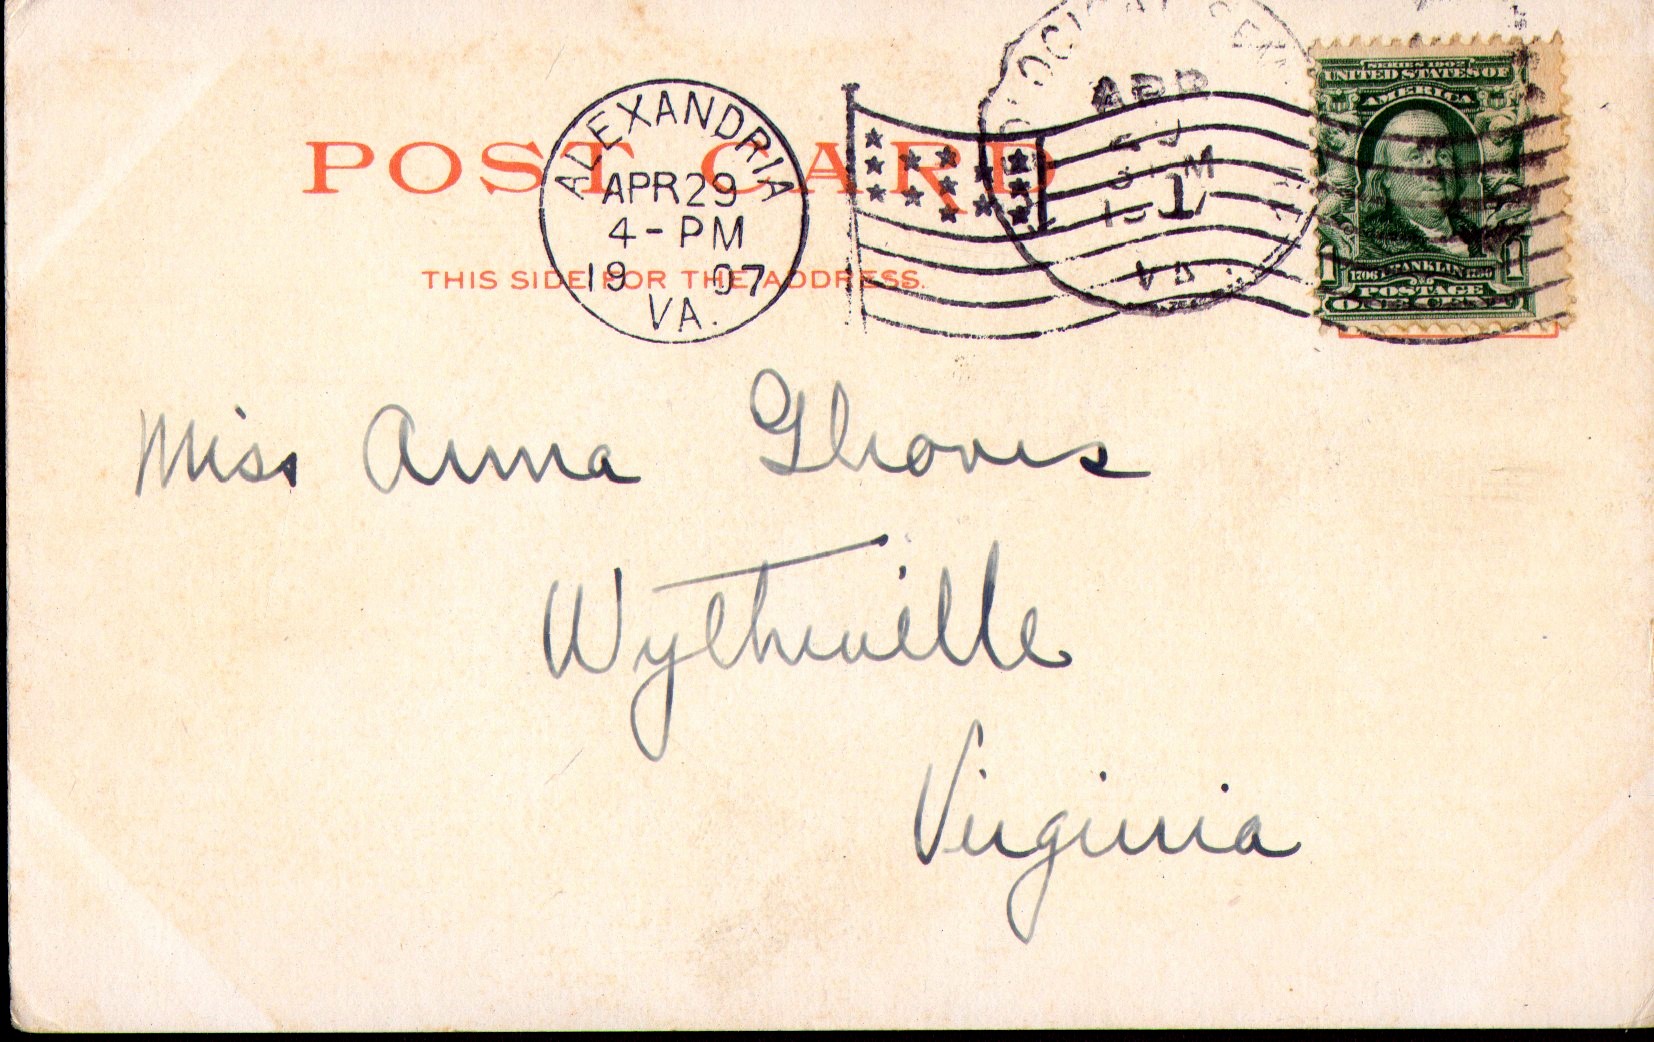 POST CARD
THIS SIDE FOR THE ADDRESS.
ALEXANDRIA
APR 29
4-PM
19 07
VA.
APR
M
1
VA.
SERIES 1902
UNITED STATES OF
AMERICA
1 1
1706 FRANKLIN 1790
POSTAGE
ONE CENT
Miss Anna
Wytheville
Virginia